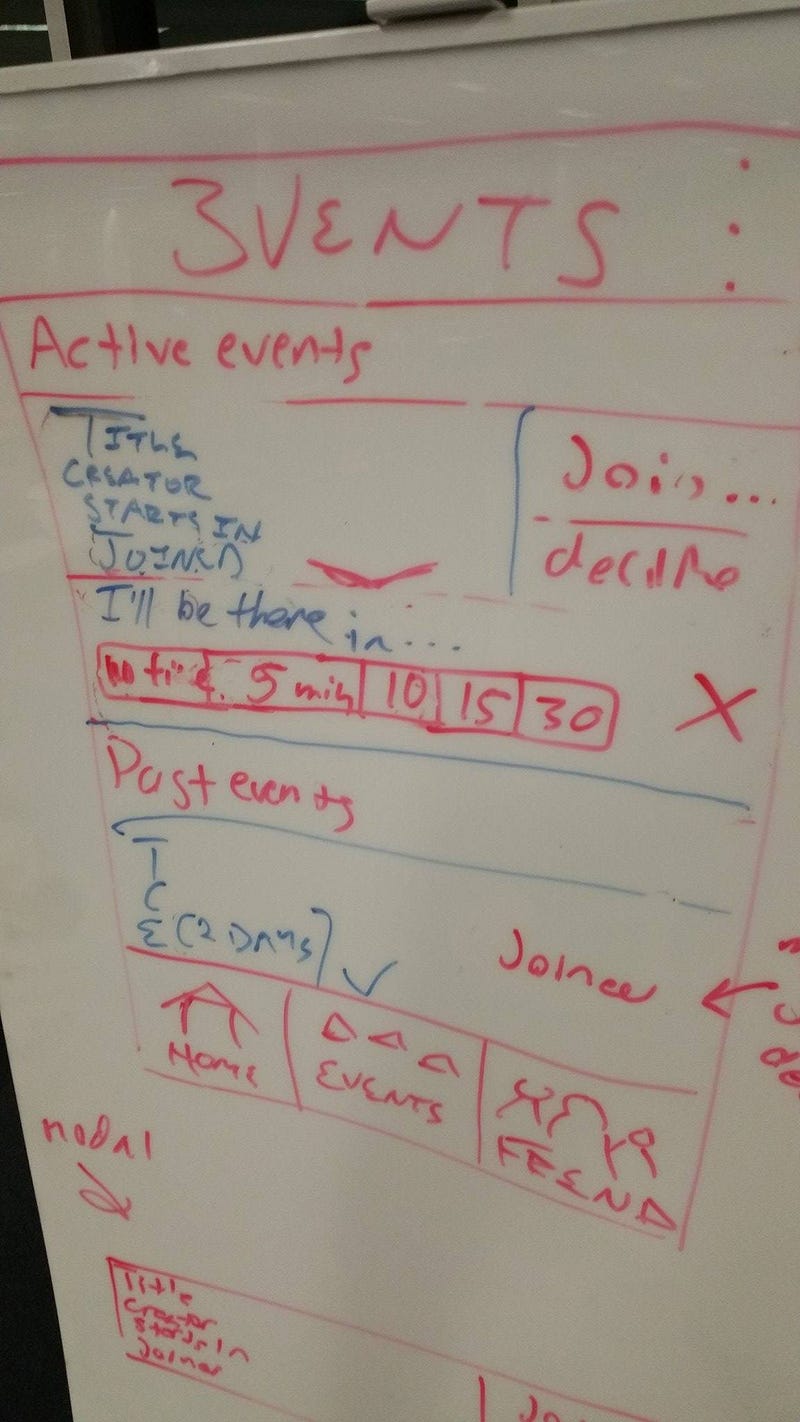 3VENTS
Active events
TITLE
CREATOR
STARTS IN
JOINED
Join...
decline
I'll be there in...
no time 5 min 10 15 30 X
Past events
T
C
E (2 DAYS)
Joined
HOME
EVENTS
FREND
modal
Title
Creator
Starts In
Joined